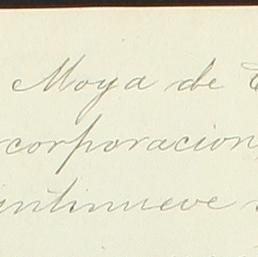 Moya de
corporacion
intinueve